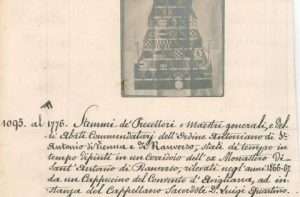 1095. al 1776. Stemmi de' Precettori e Maestri generali, e del-
li Abati Commendatarj dell'Ordine Antoniano di St
Antonio di Vienna e di Ranverso, stati di tempo in
tempo dipinti in un Corridoio dell'ex Monastero di
Sant'Antonio di Ranverso, rilevati negli anni 1866-67
da un Cappuccino del Convento d'Avigliana, ad in-
stanza del Cappellano Sacerdote D. Luigi